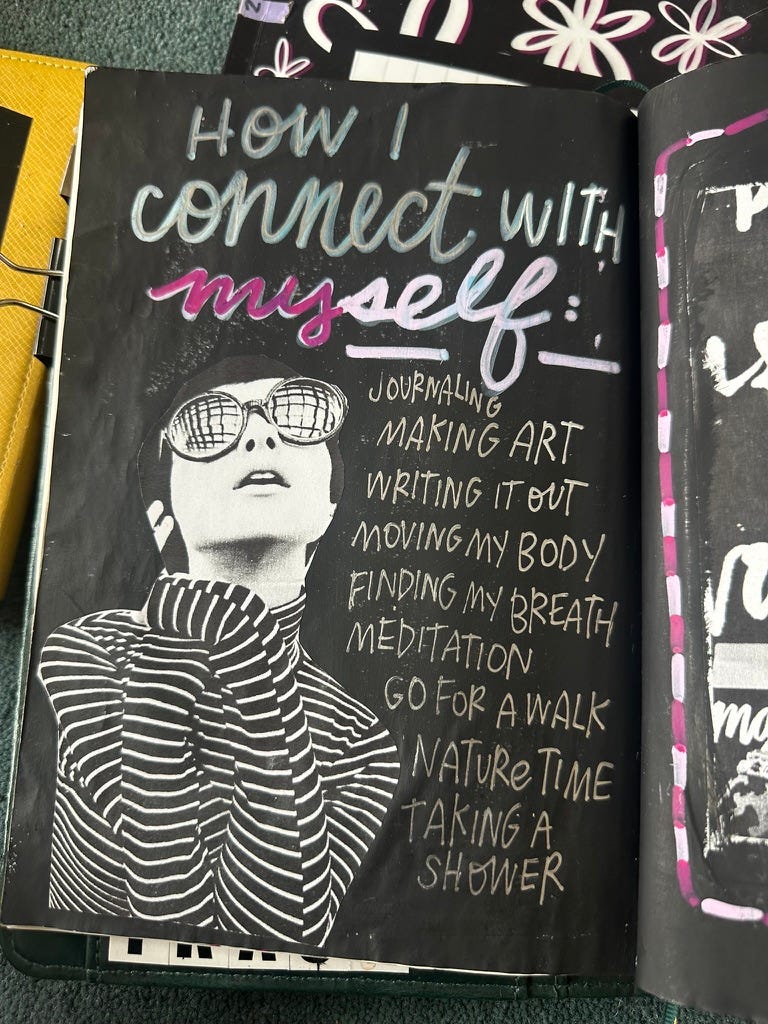 HOW I
connect WITH
myself:
JOURNALING
MAKING ART
WRITING IT OUT
MOVING MY BODY
FINDING MY BREATH
MEDITATION
GO FOR A WALK
NATURE TIME
TAKING A
SHOWER